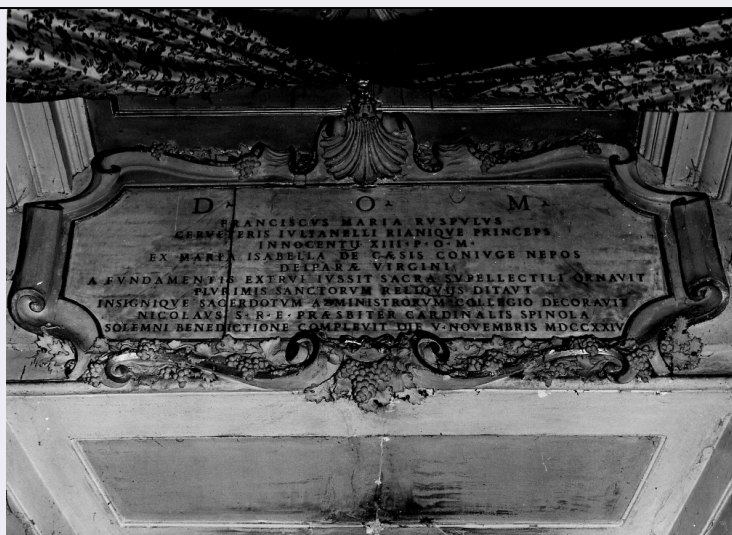 D O M
FRANCISCVS MARIA RVSPVLVS
CERVETERIS IVLIANELLI RIANIQVE PRINCEPS
INNOCENTII XIII · P · O · M ·
EX MARIA ISABELLA DE CÆSIS CONIVGE NEPOS
DEIPARÆ VIRGINI
A FVNDAMENTIS EXTRVI IVSSIT SACRA SVPELLECTILI ORNAVIT
PLVRIMIS SANCTORVM RELIQVIJS DITAVT
INSIGNIQVE SACERDOTVM AC MINISTRORVM COLLEGIO DECORAVIT
NICOLAVS · S · R · E · PRÆSBITER CARDINALIS SPINOLA
SOLEMNI BENEDICTIONE COMPLEVIT DIE · V · NOVEMBRIS MDCCXXIV